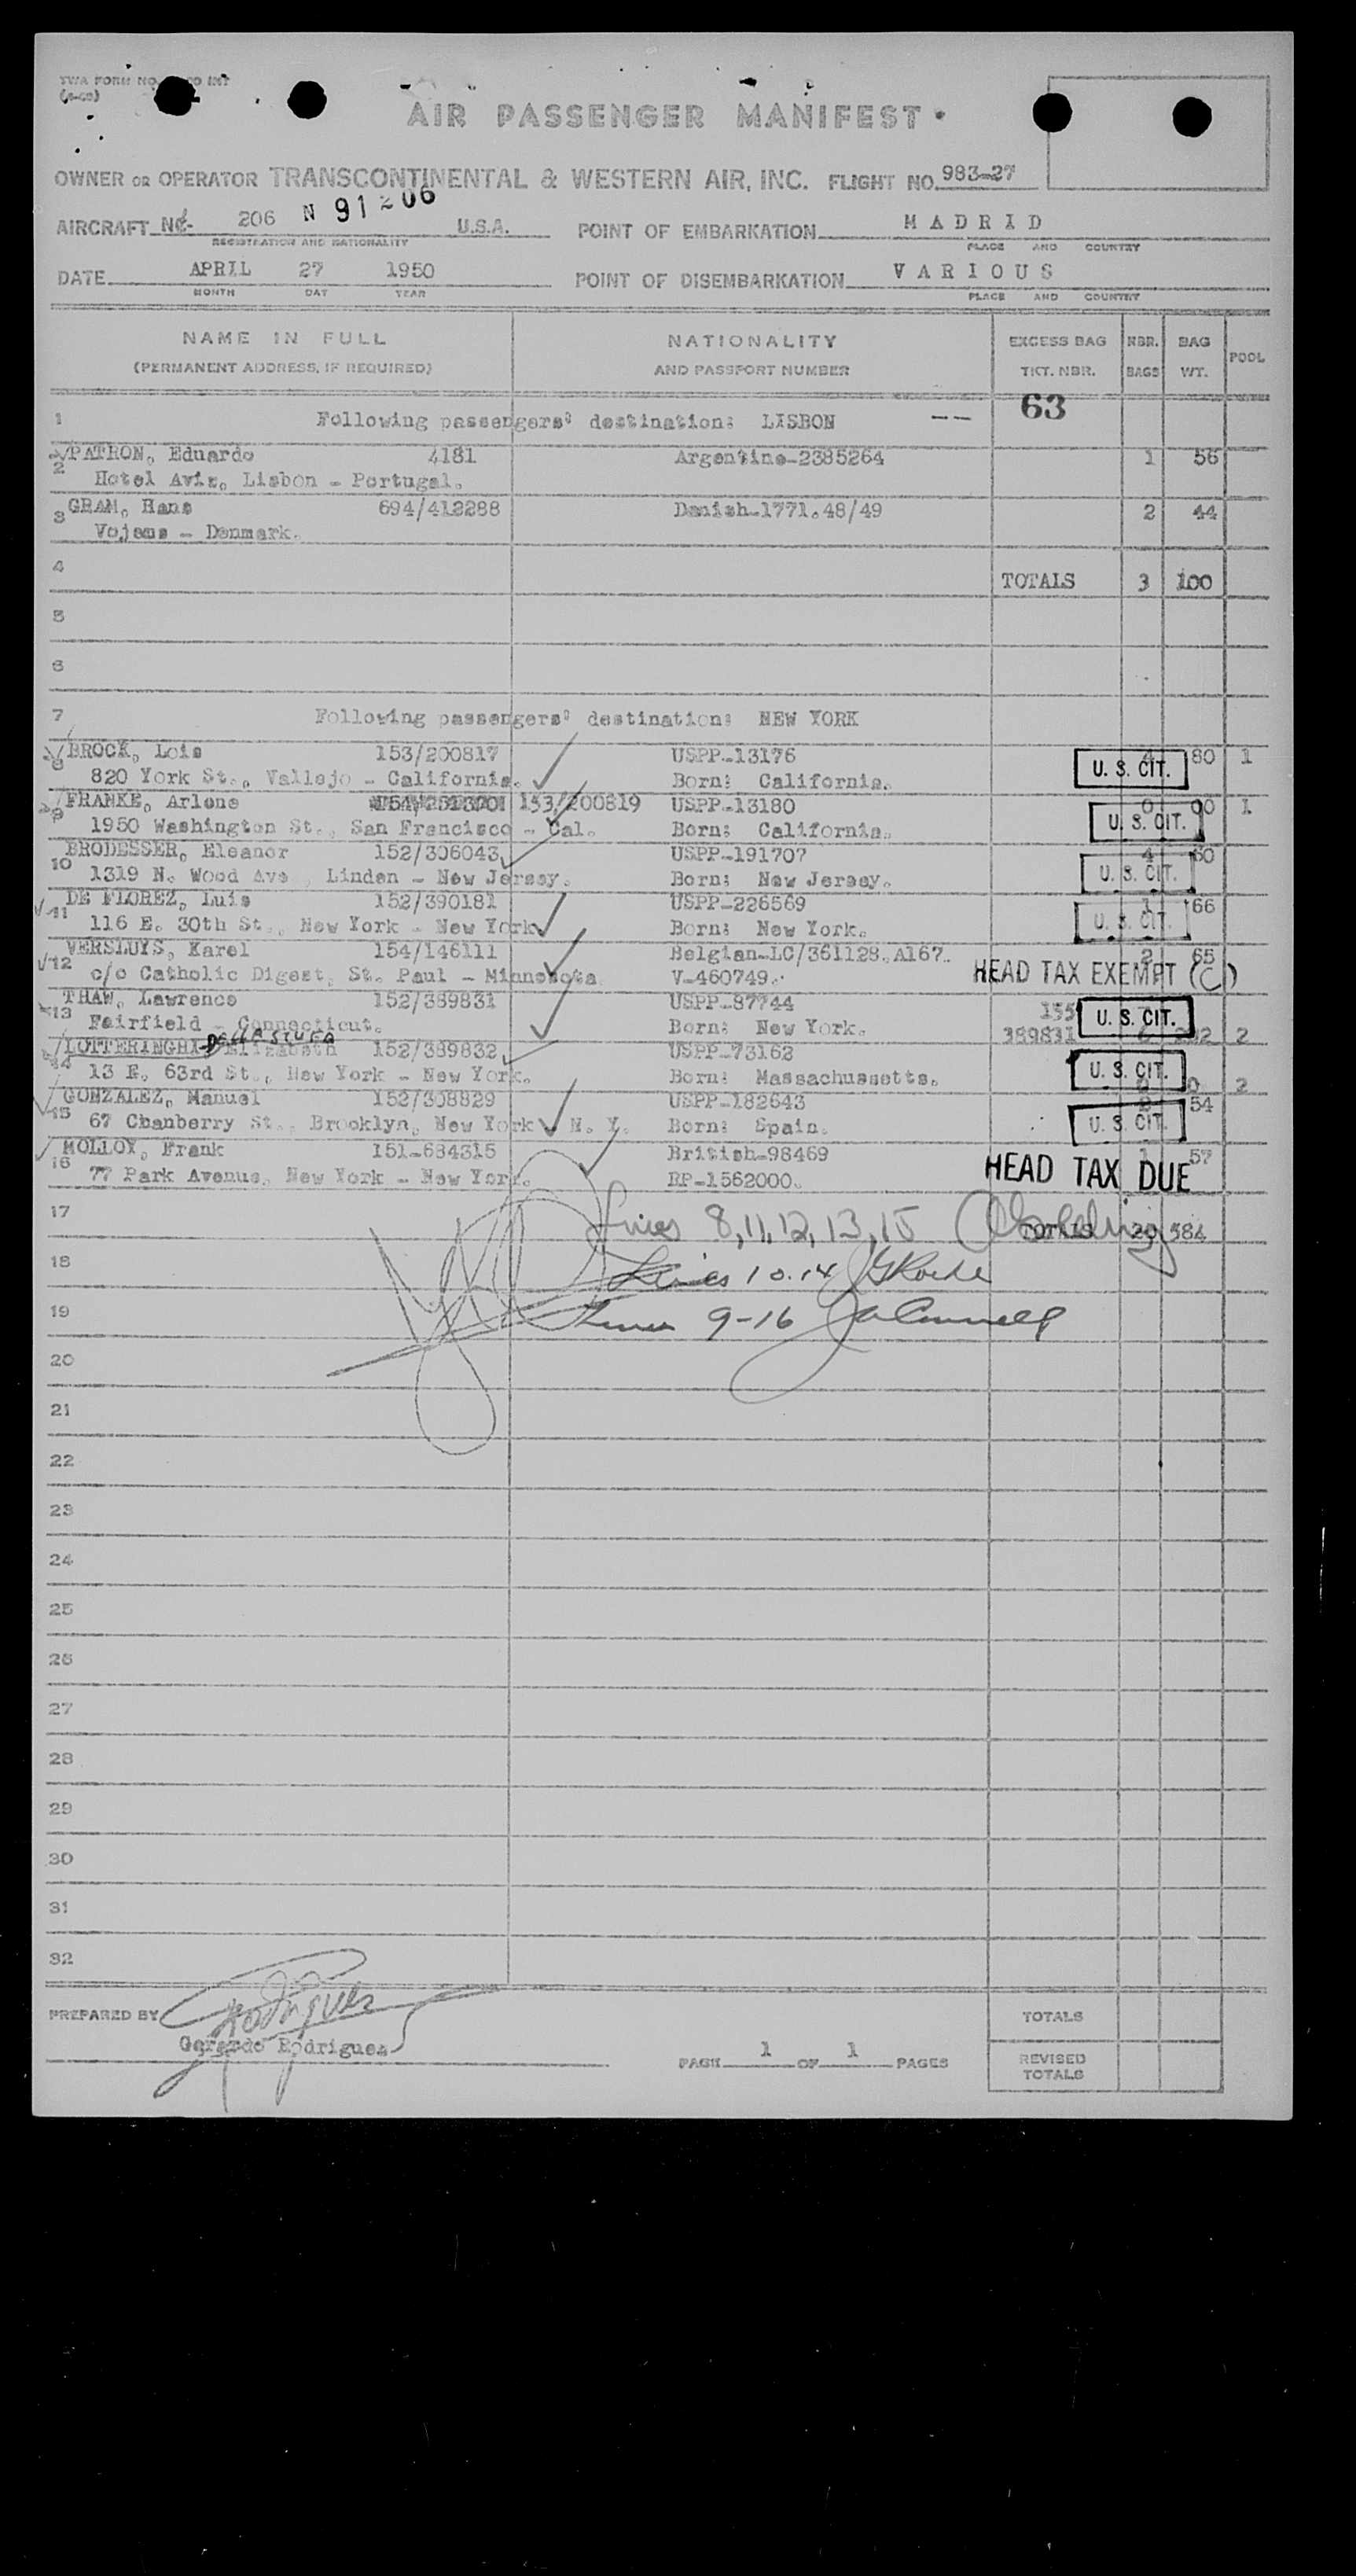 TWA FORM NO.
AIR PASSENGER MANIFEST
OWNER OR OPERATOR TRANSCONTINENTAL & WESTERN AIR, INC. FLIGHT NO. 983-27
AIRCRAFT NO. 206 N 91206 U.S.A. POINT OF EMBARKATION MADRID
REGISTRATION AND NATIONALITY PLACE AND COUNTRY
DATE APRIL 27 1950 POINT OF DISEMBARKATION VARIOUS
MONTH DAY YEAR PLACE AND COUNTRY
NAME IN FULL NATIONALITY EXCESS BAG NBR. BAG POOL
(PERMANENT ADDRESS, IF REQUIRED) AND PASSPORT NUMBER TKT. NBR. BAGS WT.
1 Following passengers' destination: LISBON -- 63
2 PATRON, Eduardo 4181 Argentine-2385264 1 56
Hotel Aviz, Lisbon - Portugal.
3 GRAM, Hans 694/412288 Danish-1771.48/49 2 44
Vojens - Denmark.
4 TOTALS 3 100
5
6
7 Following passengers' destination: NEW YORK
8 BROCK, Lois 153/200817 USPP-13176 4 80 1
820 York St., Vallejo - California. Born: California. U. S. CIT.
9 FRANKE, Arlene 153/200819 USPP-13180 0 00 1
1950 Washington St., San Francisco - Cal. Born: California. U. S. CIT.
10 BRODESSER, Eleanor 152/306043 USPP-191707 4 60
1319 N. Wood Ave , Linden - New Jersey. Born: New Jersey. U. S. CIT.
11 DE FLOREZ, Luis 152/390181 USPP-226569 1 66
116 E. 30th St., New York - New York Born: New York. U. S. CIT.
12 VERSLUYS, Karel 154/146111 Belgian-LC/361128.A167. 2 65
c/o Catholic Digest, St. Paul - Minnesota V-460749. HEAD TAX EXEMPT (C)
13 THAW, Lawrence 152/389831 USPP-87744 155 U. S. CIT.
Fairfield - Connecticut. Born: New York. 389831 6 202 2
14 LOTTERINGHI DELLA STUFA Elizabeth 152/389832 USPP-73162 U. S. CIT.
13 E. 63rd St., New York - New York. Born: Massachussetts. 0 0 2
15 GONZALEZ, Manuel 152/308829 USPP-182643 2 54
67 Cranberry St., Brooklyn, New York N. Y. Born: Spain. U. S. CIT.
16 MOLLOY, Frank 151-684315 British-98469 1 57
77 Park Avenue, New York - New York. RP-1562000. HEAD TAX DUE
17 Lines 8,11,12,13,15 TOTALS 20 584
18 Lines 10.14
19 Lines 9-16
20
21
22
23
24
25
26
27
28
29
30
31
32
PREPARED BY Rodriguez TOTALS
Gerardo Rodriguez
PAGE 1 OF 1 PAGES REVISED
TOTALS